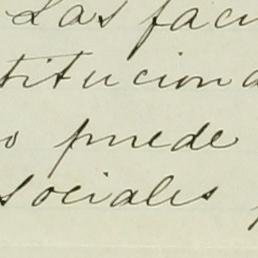 Las facu
tituciona
o puede
sociales